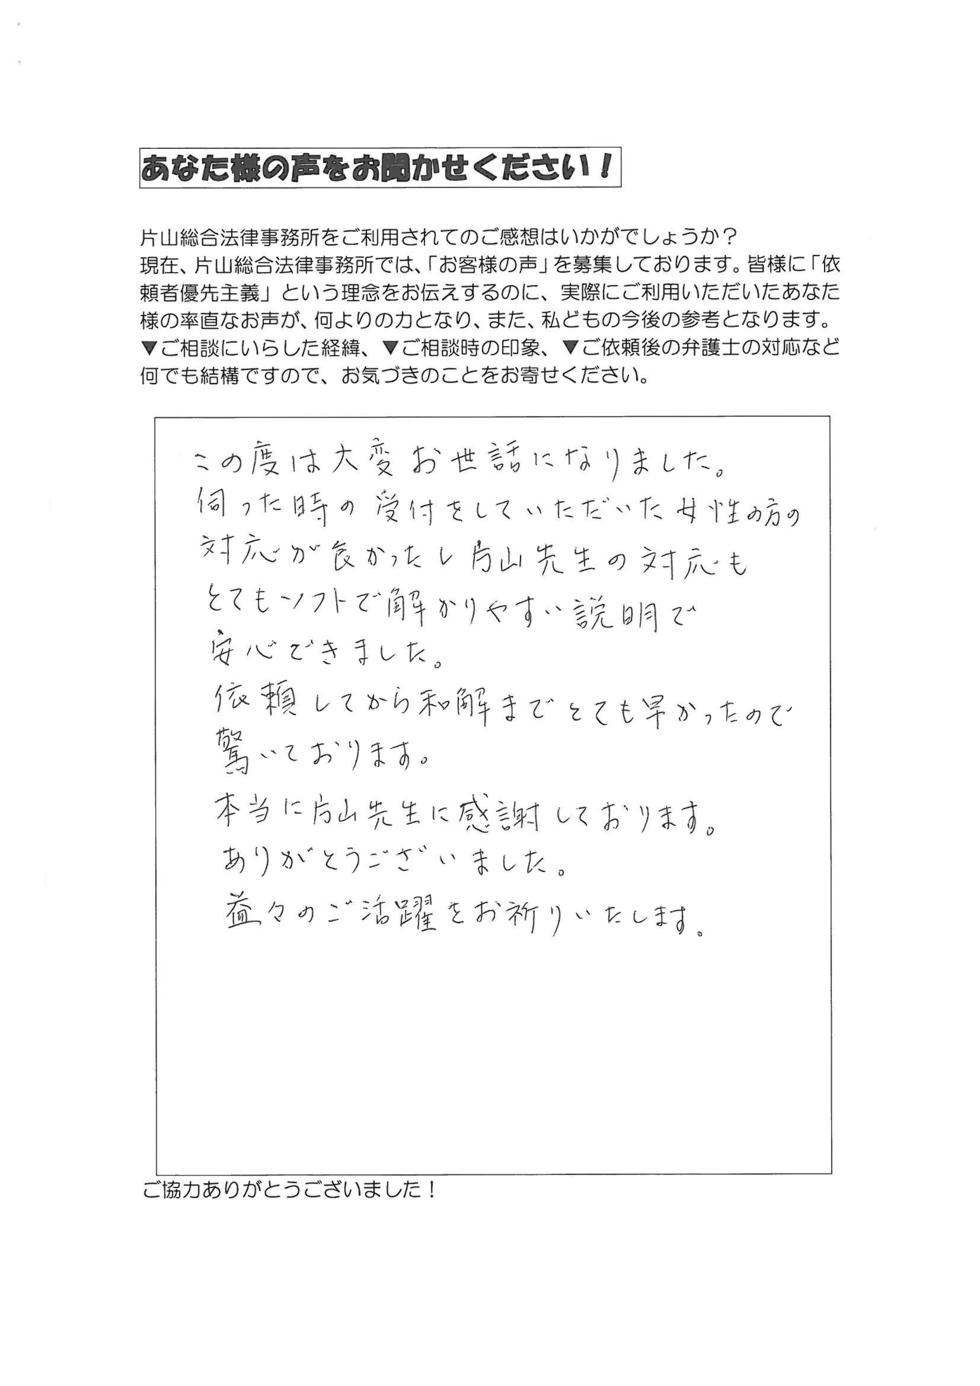 あなた様の声をお聞かせください！
片山総合法律事務所をご利用されてのご感想はいかがでしょうか？
現在、片山総合法律事務所では、「お客様の声」を募集しております。皆様に「依
頼者優先主義」という理念をお伝えするのに、実際にご利用いただいたあなた
様の率直なお声が、何よりの力となり、また、私どもの今後の参考となります。
▼ご相談にいらした経緯、▼ご相談時の印象、▼ご依頼後の弁護士の対応など
何でも結構ですので、お気づきのことをお寄せください。
この度は大変お世話になりました。
伺った時の受付をしていただいた女性の方の
対応が良かったし片山先生の対応も
とてもソフトで解かりやすい説明で
安心できました。
依頼してから和解までとても早かったので
驚いております。
本当に片山先生に感謝しております。
ありがとうございました。
益々のご活躍をお祈りいたします。
ご協力ありがとうございました！